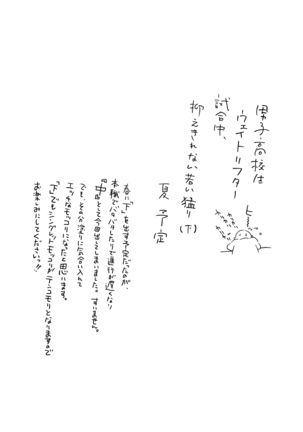 男子高校生
ウェイトリフター
試合中、
抑えきれない若い猛り(下)
夏予定
ヒー
春に「下」を出す予定だったのが、
本職でバタバタしたりで進行が遅くなり
「中」として今回出してしまいました。すいません。
でも、そのかわりに気合い入れて
エッチなモッコリになったと思います。
「下」でもシングレットモッコリがテーコモリとなりますので
お楽しみにしてくださいっ!!